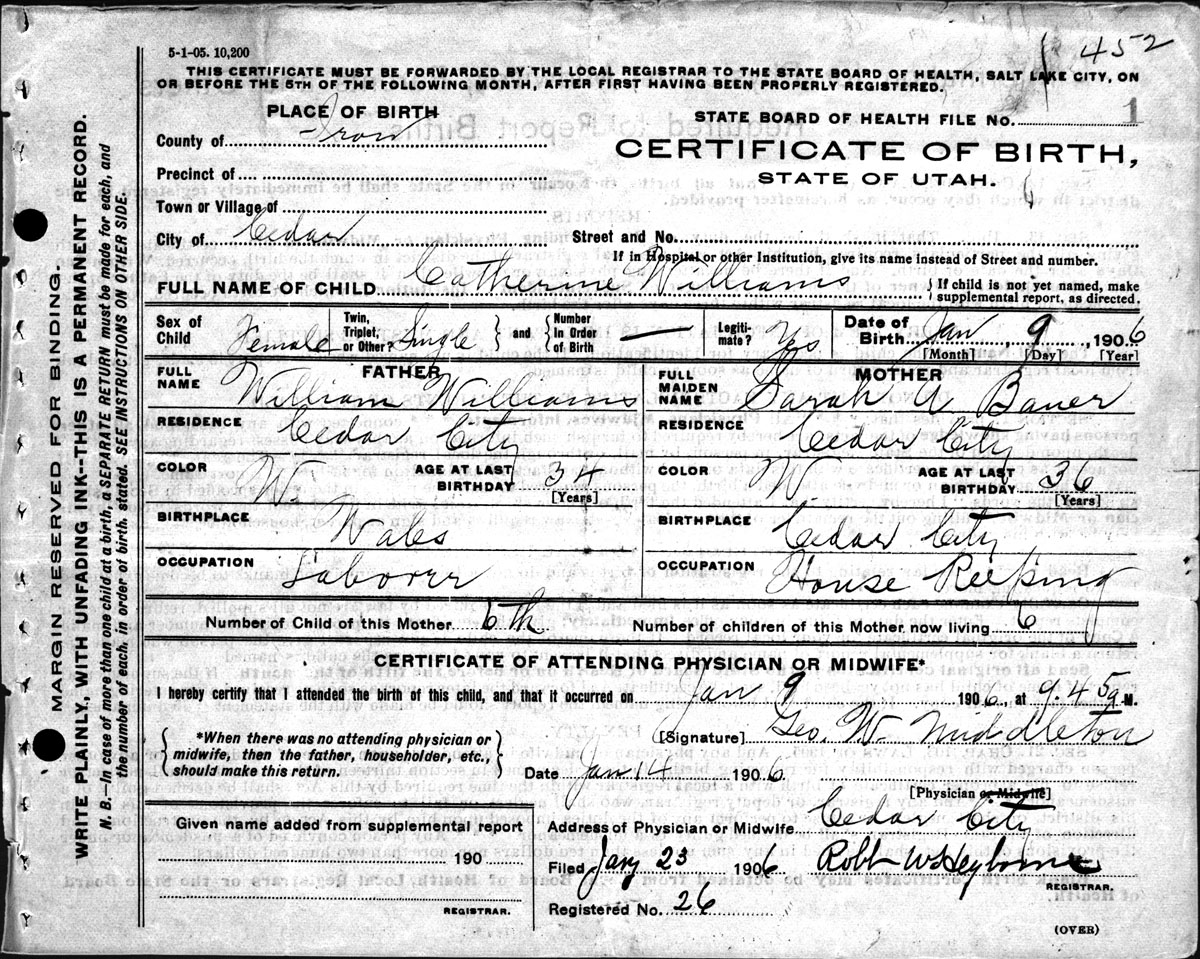 452
5-1-05. 10,200
THIS CERTIFICATE MUST BE FORWARDED BY THE LOCAL REGISTRAR TO THE STATE BOARD OF HEALTH, SALT LAKE CITY, ON
OR BEFORE THE 5TH OF THE FOLLOWING MONTH, AFTER FIRST HAVING BEEN PROPERLY REGISTERED.
PLACE OF BIRTH
STATE BOARD OF HEALTH FILE NO. 1
County of Iron
CERTIFICATE OF BIRTH,
STATE OF UTAH.
Precinct of
Town or Village of
City of Cedar Street and No.
If in Hospital or other Institution, give its name instead of Street and number.
FULL NAME OF CHILD Catherine Williams { If child is not yet named, make
supplemental report, as directed.
Sex of Child Female Twin, Triplet, or Other? Single } and { Number In Order of Birth — Legiti-mate? Yes Date of Birth Jan 9, 1906
[Month] [Day] [Year]
FATHER
FULL NAME William Williams
RESIDENCE Cedar City
COLOR W. AGE AT LAST BIRTHDAY 34
[Years]
BIRTHPLACE Wales
OCCUPATION Laborer
MOTHER
FULL MAIDEN NAME Sarah A Bauer
RESIDENCE Cedar City
COLOR W AGE AT LAST BIRTHDAY 36
[Years]
BIRTHPLACE Cedar City
OCCUPATION House Keeping
Number of Child of this Mother 6th Number of children of this Mother now living 6
CERTIFICATE OF ATTENDING PHYSICIAN OR MIDWIFE*
I hereby certify that I attended the birth of this child, and that it occurred on Jan 9 1906, at 9.45 a M.
{ *When there was no attending physician or
midwife, then the father, householder, etc.,
should make this return. }
[Signature] Geo. W. Middleton
Date Jan 14 1906
[Physician or Midwife]
Address of Physician or Midwife Cedar City
Given name added from supplemental report
190
REGISTRAR.
Filed Jany 23 1906 Robt W Heyborne
REGISTRAR.
Registered No. 26
(OVER)
MARGIN RESERVED FOR BINDING.
WRITE PLAINLY, WITH UNFADING INK--THIS IS A PERMANENT RECORD.
N. B.—In case of more than one child at a birth, a SEPARATE RETURN must be made for each, and
the number of each, in order of birth, stated. SEE INSTRUCTIONS ON OTHER SIDE.